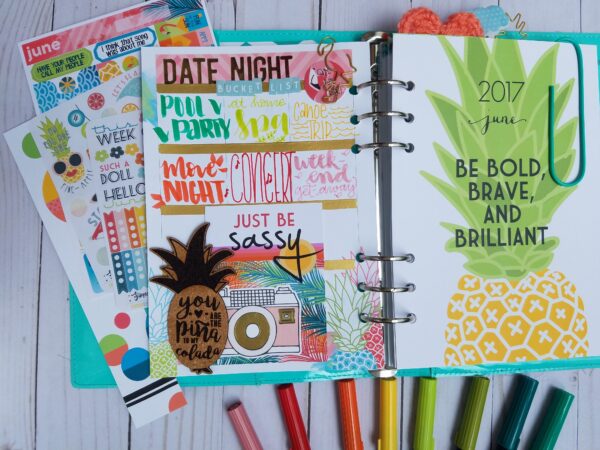 june
HAVE YOUR PEOPLE
CALL MY PEOPLE
I think that song
was about me
WEEK
SUCH A
DOLL
HELLO
DATE NIGHT
BUCKET LIST
POOL
PARTY
at home
Spa
CANOE
TRIP
Movie
NIGHT
CONCERT
week
end
get away
JUST BE
sassy
you
ARE THE
piña
TO MY
colada
2017
june
BE BOLD,
BRAVE,
AND
BRILLIANT